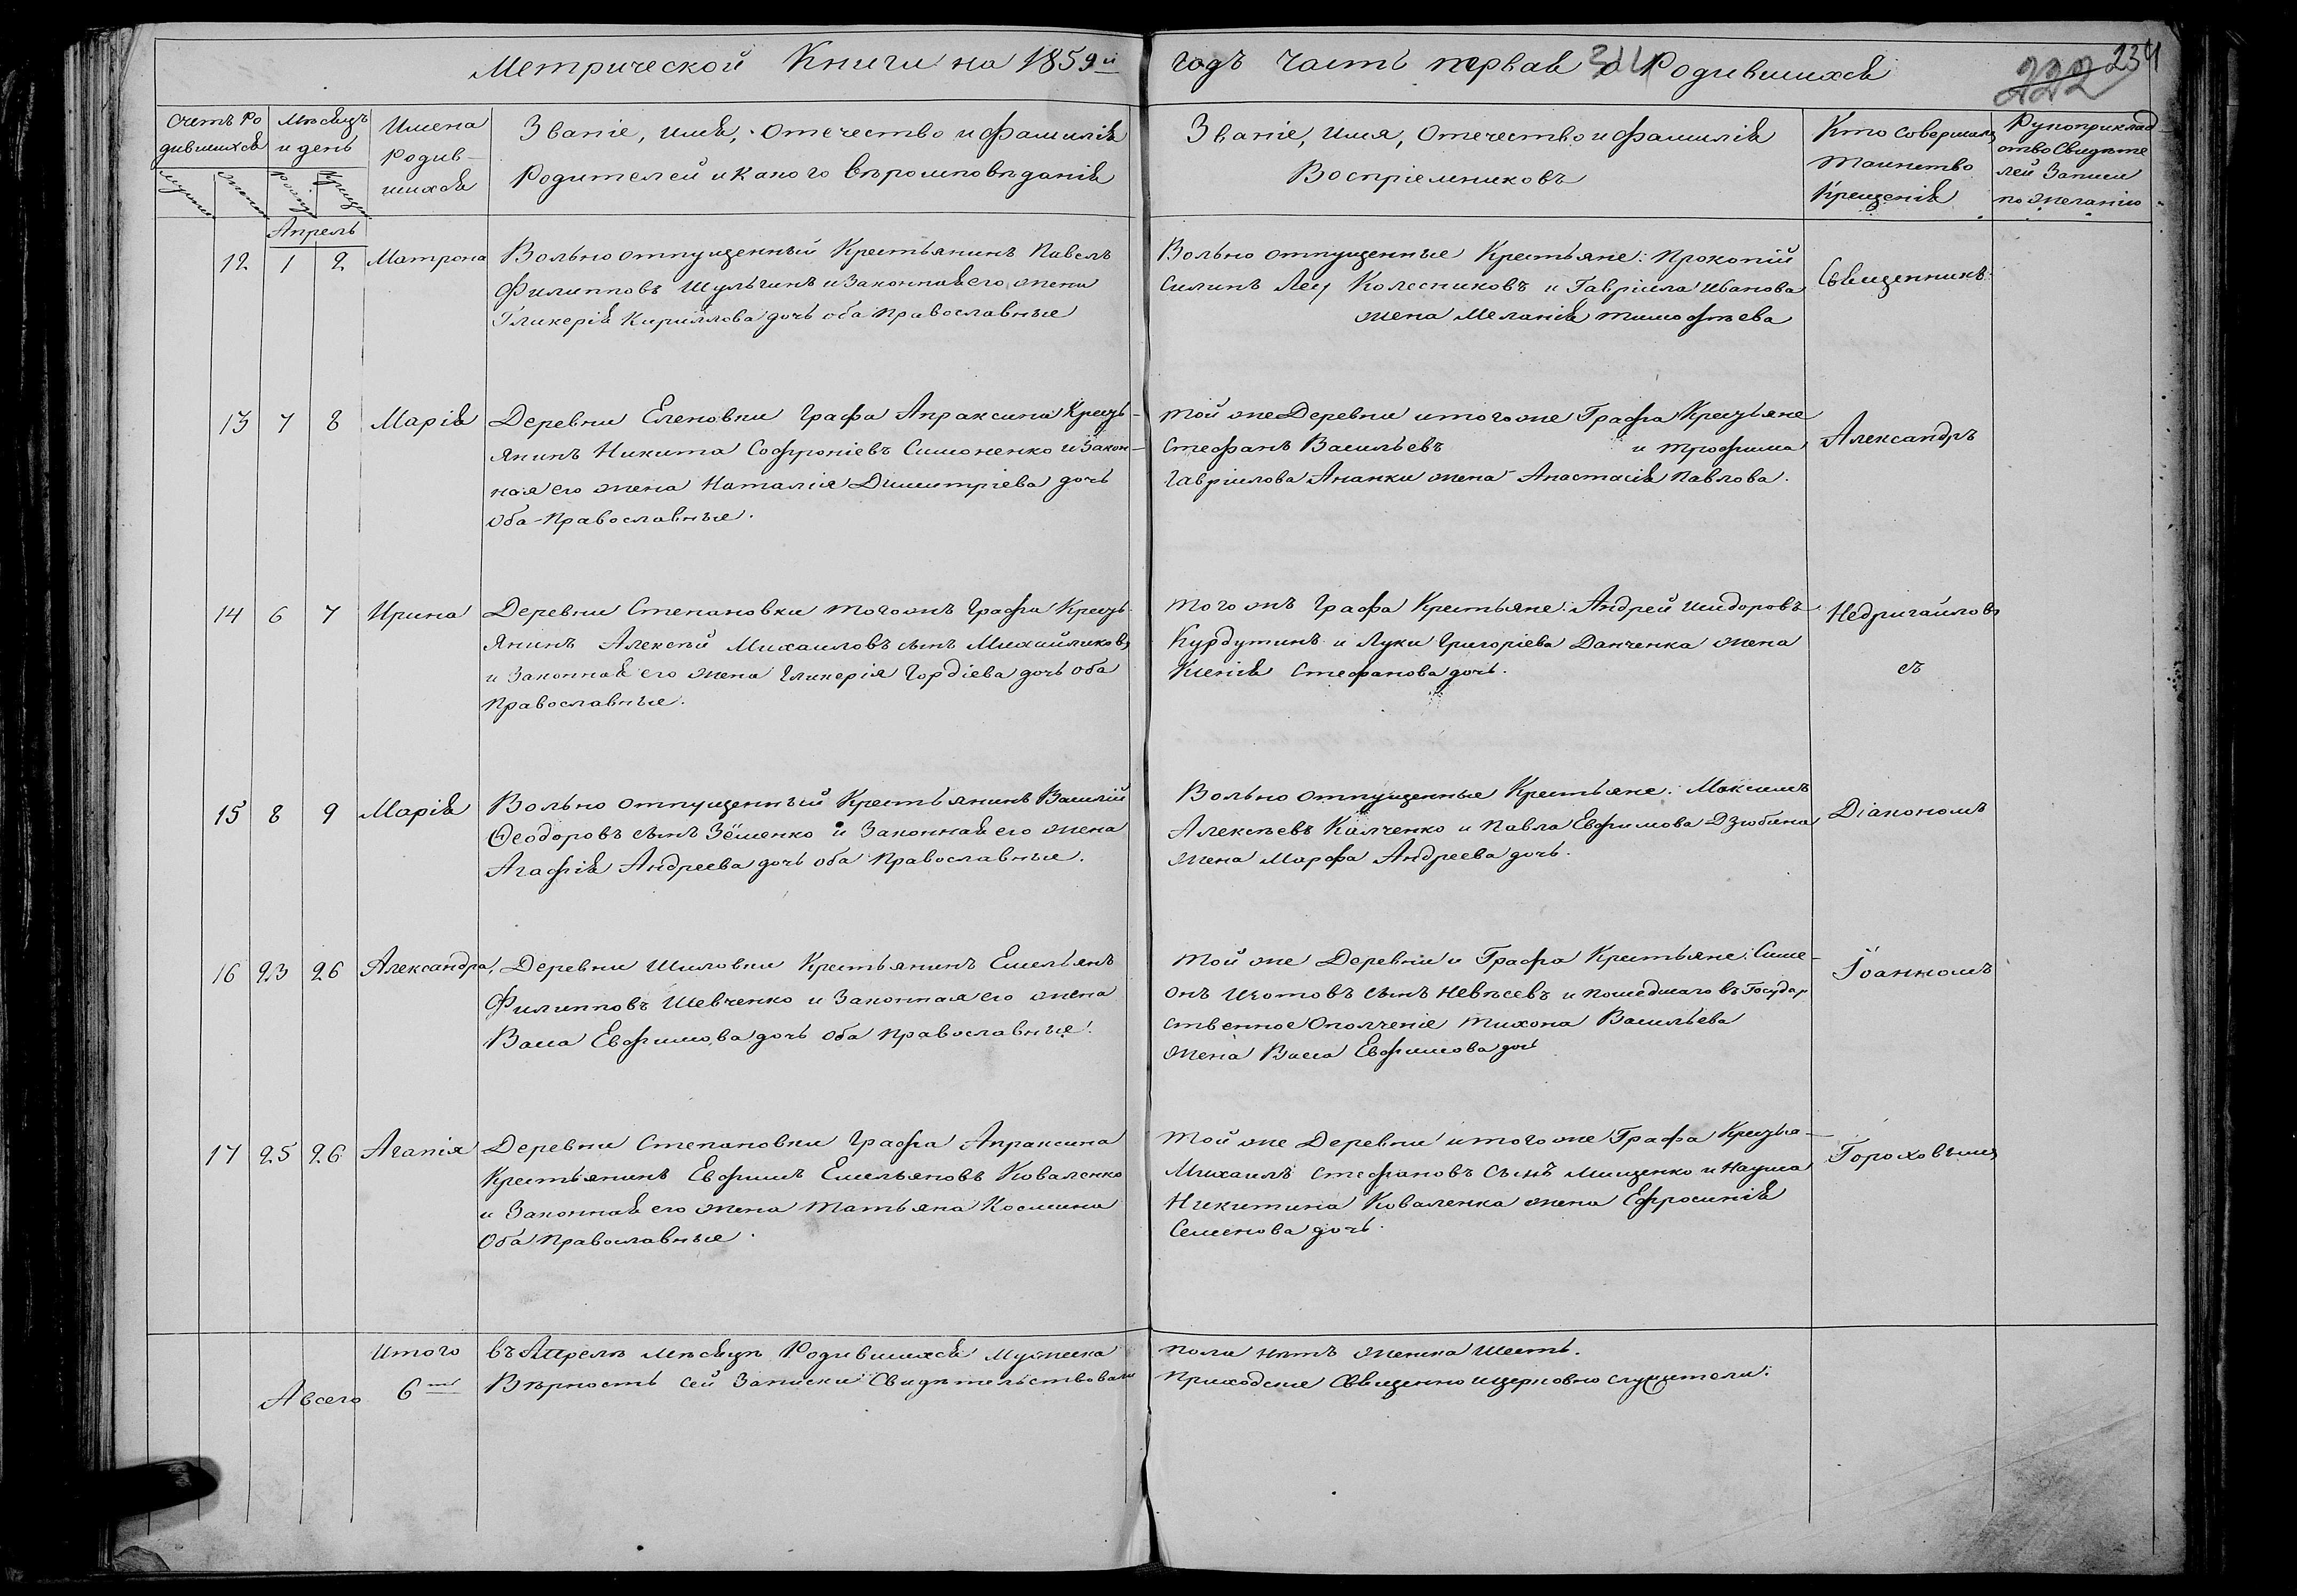 Метрической Книги на 1859й годъ часть первая о Родившихся
234
222
Счетъ Ро
дившихся
Мѣсяцъ
и день
Имена
Родив-
шихся
Званіе, имя, Отечество и фамилія
Родителей и какого вѣроисповѣданія
Званіе, имя, Отечество и фамилія
Воспріемниковъ
Кто совершалъ
таинство
Крещенія
Рукоприклад-
ство Свидѣте
лей Записи
по желанію
Апрель
12 1 2 Матрона
Вольно отпущенный Крестьянинъ Павелъ
Филипповъ Шульгинъ и законная его жена
Гликерія Кириллова дочь оба православные
Вольно отпущенные Крестьяне: Прокопій
Силинъ Колесниковъ и Гавріила Иванова
жена Меланія Тимофѣева
Священникъ
13 7 8 Марія
Деревни Еленовки Графа Апраксина Крестъ-
янинъ Никита Софроніевъ Симоненко и закон-
ная его жена Наталія Димитріева дочь
оба православные.
той же Деревни и того же Графа Крестьяне
Стефанъ Васильевъ и Трофима
Гавріилова Ананки жена Анастасія Павлова.
Александръ
14 6 7 Ирина
Деревни Степановки тогожъ Графа Кресть-
янинъ Алексѣй Михаиловъ сынъ Михайликовъ
и законная его жена Гликерія Гордіева дочь оба
православные.
тогожъ Графа Крестьяне: Андрей Исидоровъ
Курдутинъ и Луки Григоріева Данченка жена
Ксенія Стефанова дочь.
Недригайловъ
съ
15 8 9 Марія
Вольно отпущенный Крестьянинъ Василій
Ѳеодоровъ сынъ Зёменко и законная его жена
Агафія Андреева дочь оба православные.
Вольно отпущенные Крестьяне: Максимъ
Алексѣевъ Калченко и Павла Евфимова Дзюбина
жена Марфа Андреева дочь.
Діакономъ
16 23 26 Александра
Деревни Шиловки Крестьянинъ Емельянъ
Филипповъ Шевченко и законная его жена
Васса Евфимова дочь оба православные.
той же Деревни и Графа Крестьяне: Симе-
онъ Изотовъ сынъ Невѣсевъ и пошедшаго въ Государ
ственное Ополченіе Тихона Васильева
жена Васса Евфимова дочь
Іоанномъ
17 25 26 Агапія
Деревни Степановки Графа Апраксина
Крестьянинъ Евфимъ Емельяновъ Коваленко
и законная его жена Татьяна Космина
оба православные.
той же Деревни и того же Графа Крестья-
Михаилъ Стефановъ сынъ Мищенко и Наума
Никитина Коваленка жена Ефросинія
Семенова дочь.
Гороховымъ
Итого въ Апрелѣ мѣсяцѣ Родившихся мужеска пола нѣтъ женска шесть.
А всего 6ть Вѣрность сей Записки Свидѣтельствовали приходскіе Священно и церковно служители: